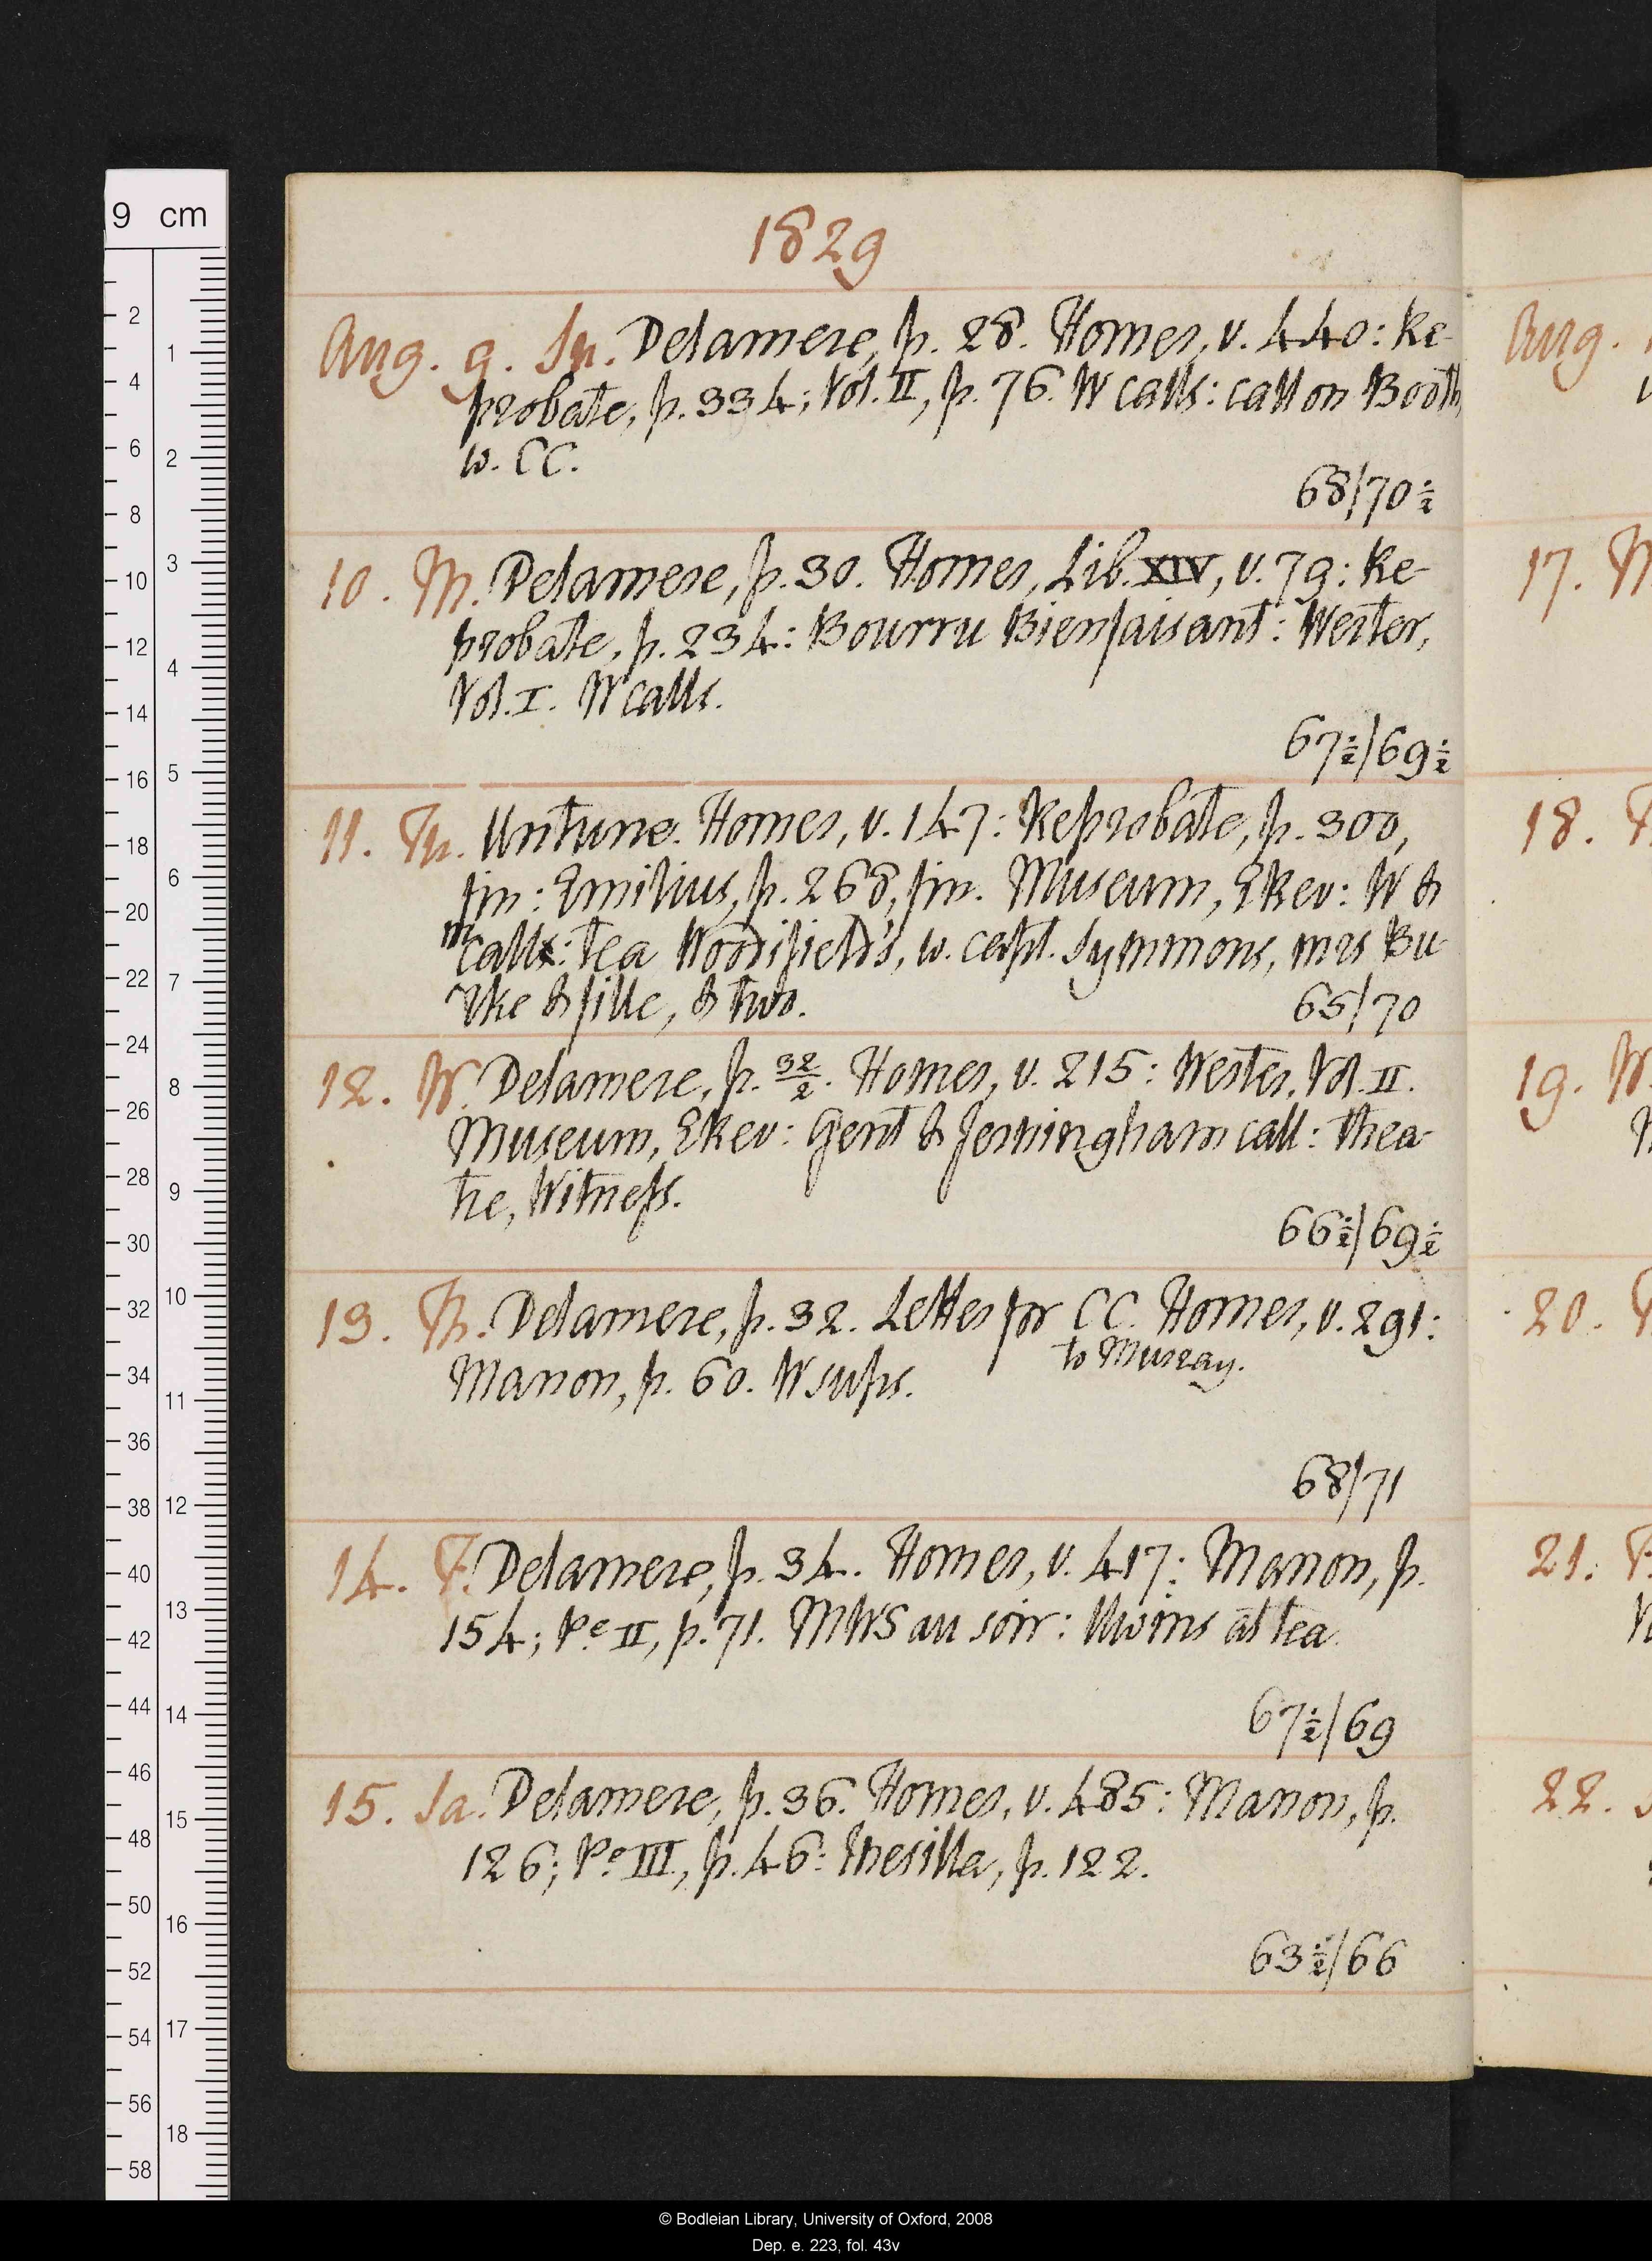 9 cm
1829
Aug. 9. Su. Delamere, p. 28. Homer, v. 440: Re-
probate, p. 334; Vol. II, p. 76. W calls: call on Booth,
w. CC.
68/70½
10. M. Delamere, p. 30. Homer, Lib. XIV, v. 79: Re-
probate, p. 234: Bourru Bienfaisant: Werter,
Vol. I. W calls.
67½/69½
11. Tu. Untune. Homer, v. 147: Reprobate, p. 300,
fin: Emilius, p. 268, fin. Museum, ERev: W &
m call: tea Woodifield's, w. capt. Symmons, mrs Bu-
rke & fille, & two.
65/70
12. W. Delamere, p. 32/2. Homer, v. 215: Werter, Vol. II.
Museum, ERev: Gent & Jerningham call: thea-
tre, Witness.
66½/69½
13. Th. Delamere, p. 32. Letter for CC. Homer, v. 291:
to Murray.
Manon, p. 60. W sups.
68/71
14. F. Delamere, p. 34. Homer, v. 417: Manon, p.
154; Pe II, p. 71. MWS au soir: Uwins at tea.
67½/69
15. Sa. Delamere, p. 36. Homer, v. 485: Manon, p.
126; Pe III, p. 46: Inesilla, p. 122.
63½/66
Aug.
17. M
18. T
19. W
20. T
21. F
22. S
© Bodleian Library, University of Oxford, 2008
Dep. e. 223, fol. 43v